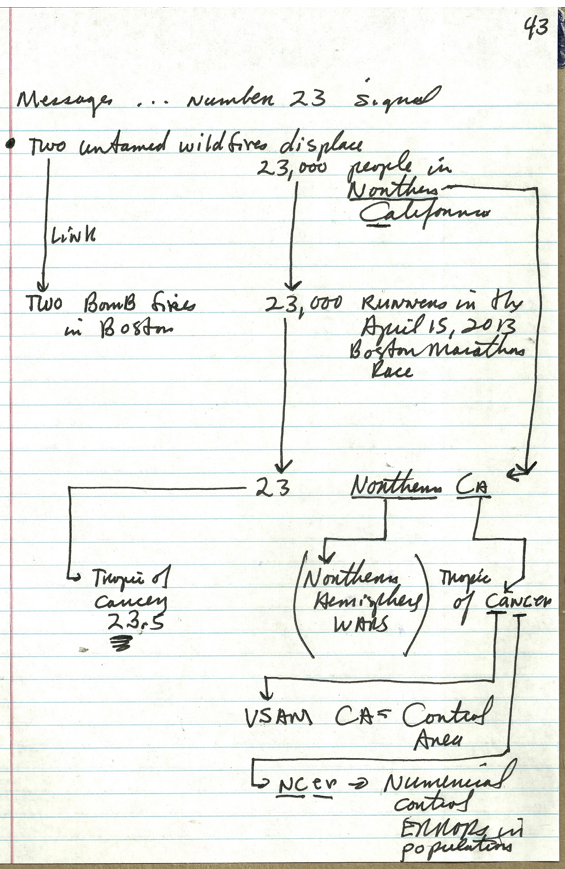 43
Messages ... Number 23 signal
• Two untamed wildfires displace
23,000 people in
Northern
California
Link
Two Bomb fires
in Boston
23,000 Runners in the
April 15, 2013
Boston Marathon
Race
23
Northern CA
Tropic of
Cancer
23.5
(Northern
Hemisphere
WARS)
Tropic
of Cancer
VSAM CA = Control
Area
NCer → Numerical
control
ERRORS in
population